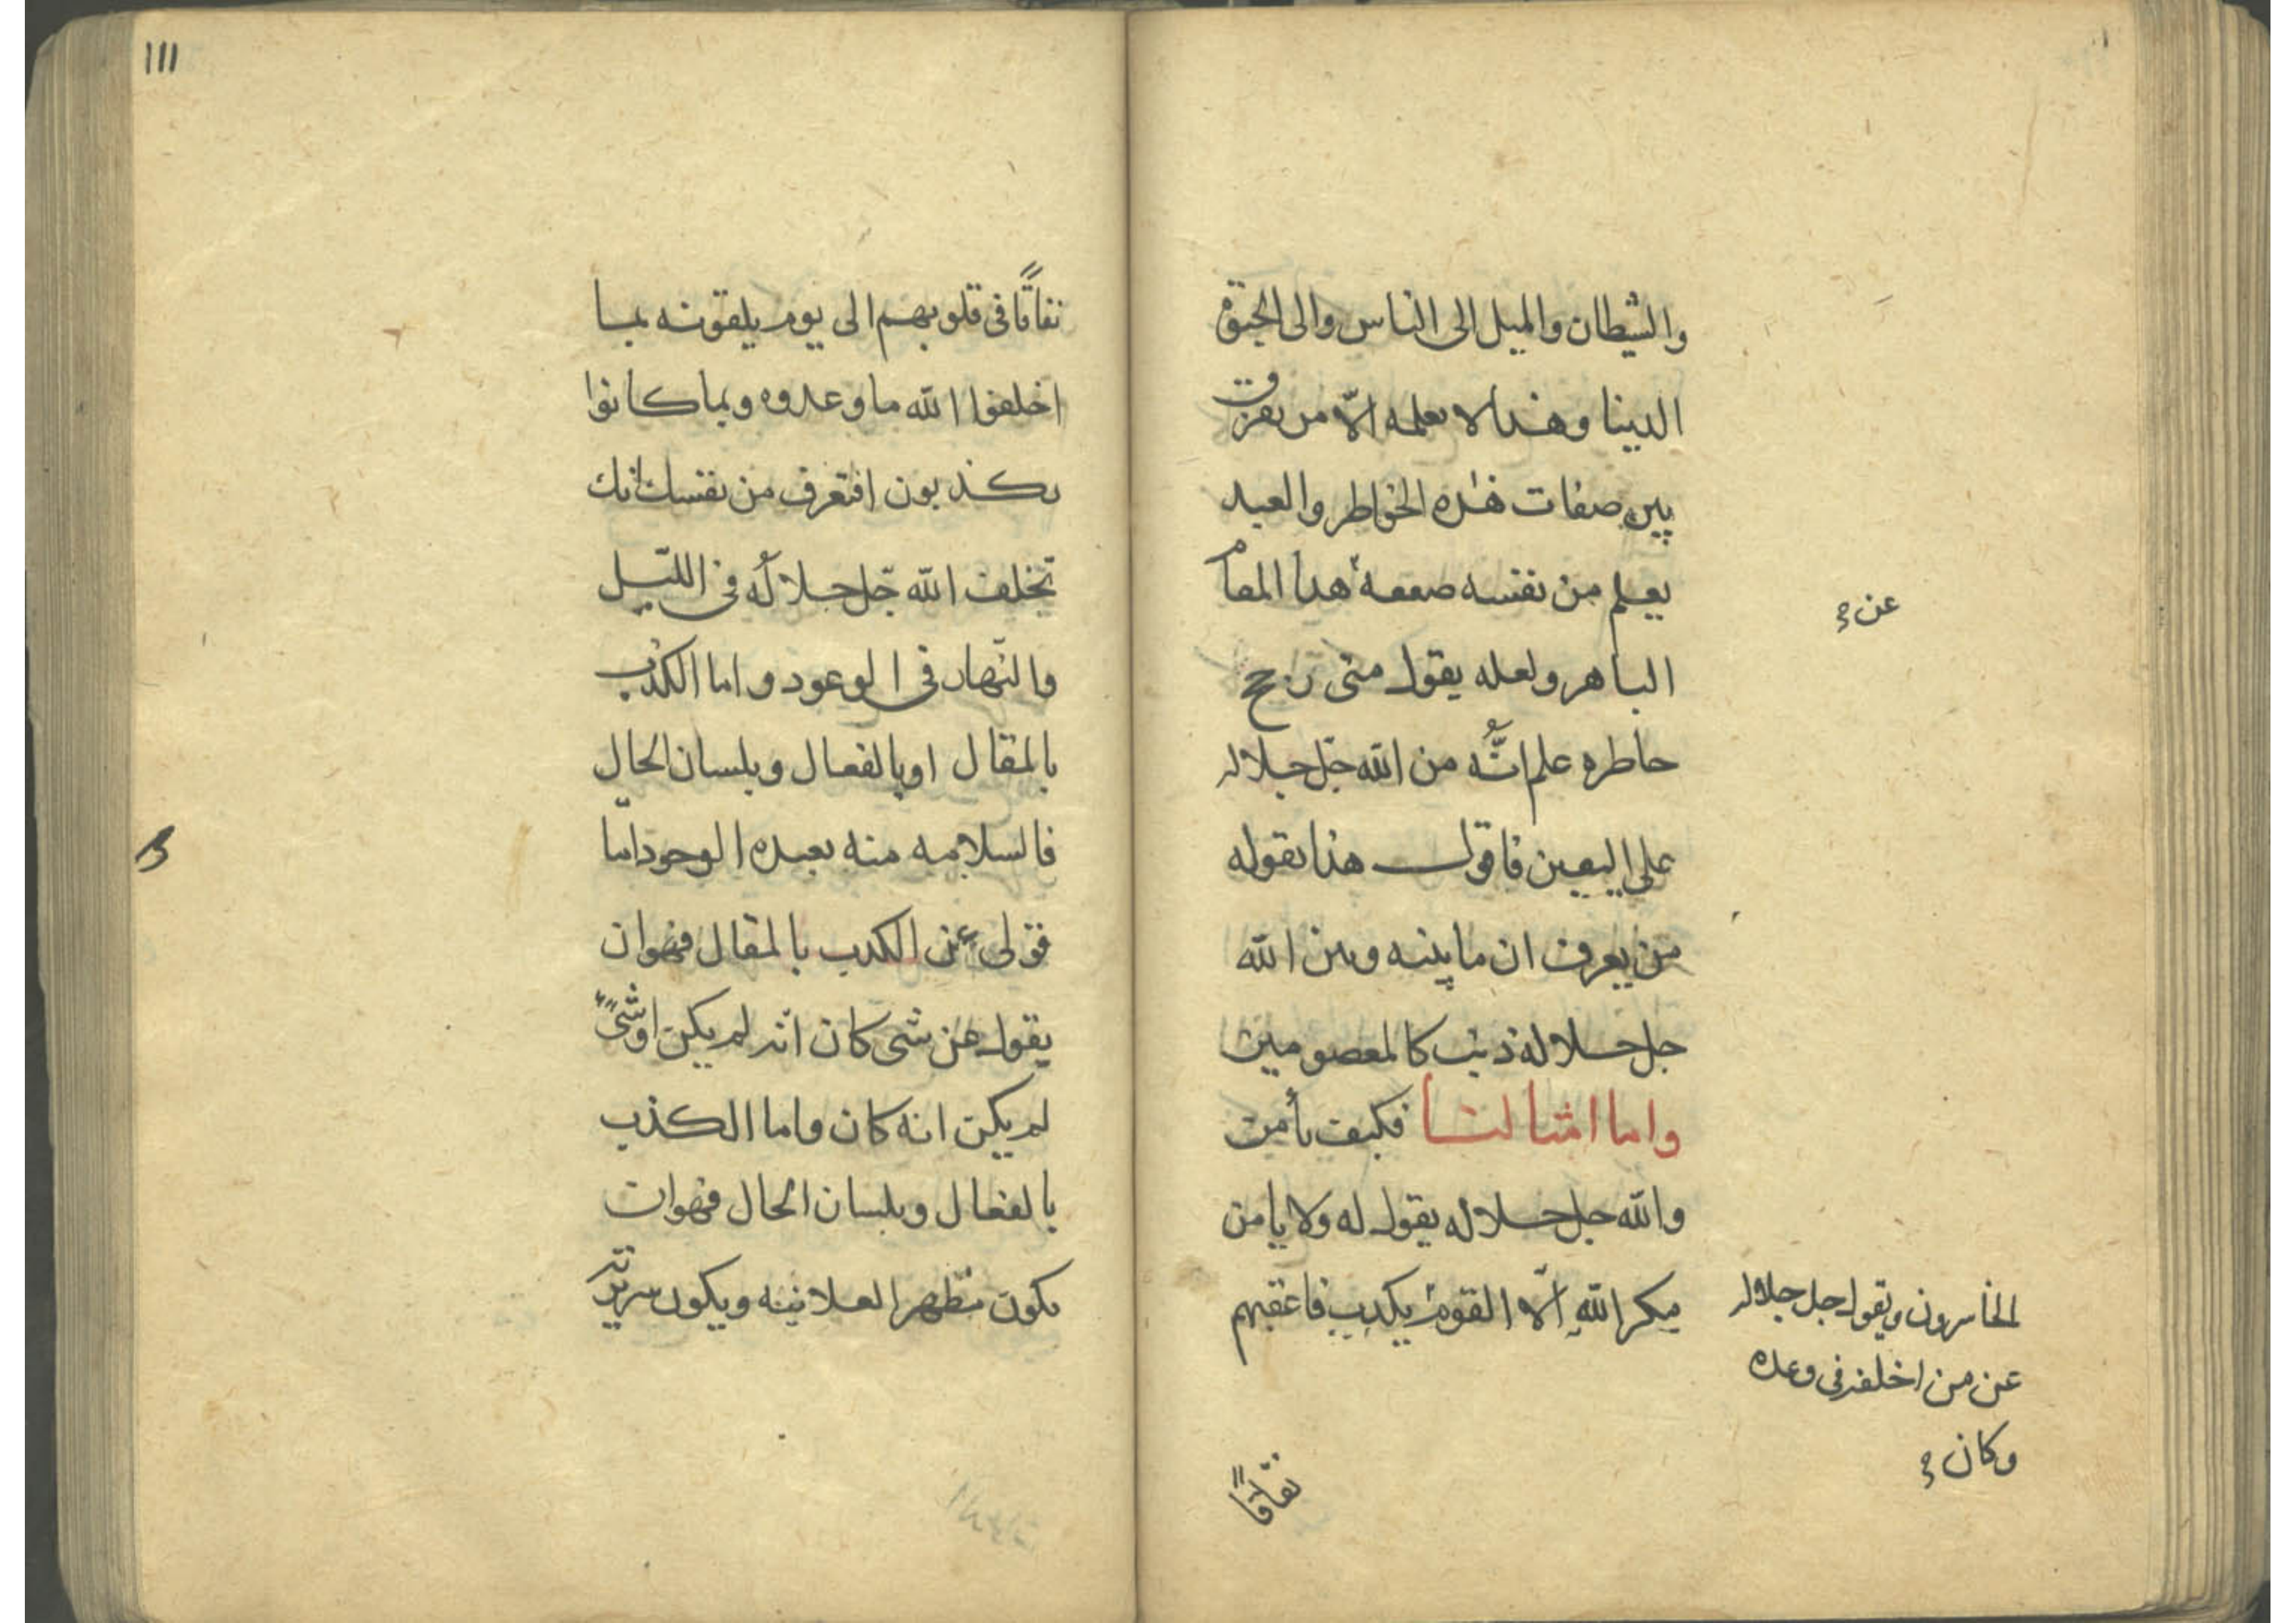 والشيطان والميل الى الناس والى الحيوة
الدينا وهذا لا يعلمه الّا من يفرّق
بين صفات هذه الخواطر والعبد
يعلم من نفسه ضعفه هذا المقام
عن
الباهر ولعله يقول متى ترجح
خاطره علم انّه من الله جلّ جلاله
على اليقين فاقول هذا يقوله
من يعرف ان ما بينه وبين الله
جل جلاله ذنب كالمعصومين
واما امثالنا فكيف يأمن
والله جل جلاله يقول له ولا يامن
مكر الله الّا القوم يكذب فاعقبهم
الخاسرون ويقول جل جلاله
عن من اخلفه في وعده
وكان
نفاقًا
١١١
نفاقًا في قلوبهم الى يوم يلقونه بما
اخلفوا الله ما وعدوه وبما كانوا
يكذبون افتعرف من نفسك انك
تخلف الله جلّ جلاله في الليّل
والنّهار في الوعود واما الكذب
بالمقال او بالفعال وبلسان الحال
فالسلامه منه بعيده الوجود امّا
قولى عن الكذب بالمقال فهو ان
يقول عن شى كان انّه لم يكن او شىً
لم يكن انه كان واما الكذب
بالفعال وبلسان الحال فهو ان
يكون مظهر العلانيه ويكون سريرته